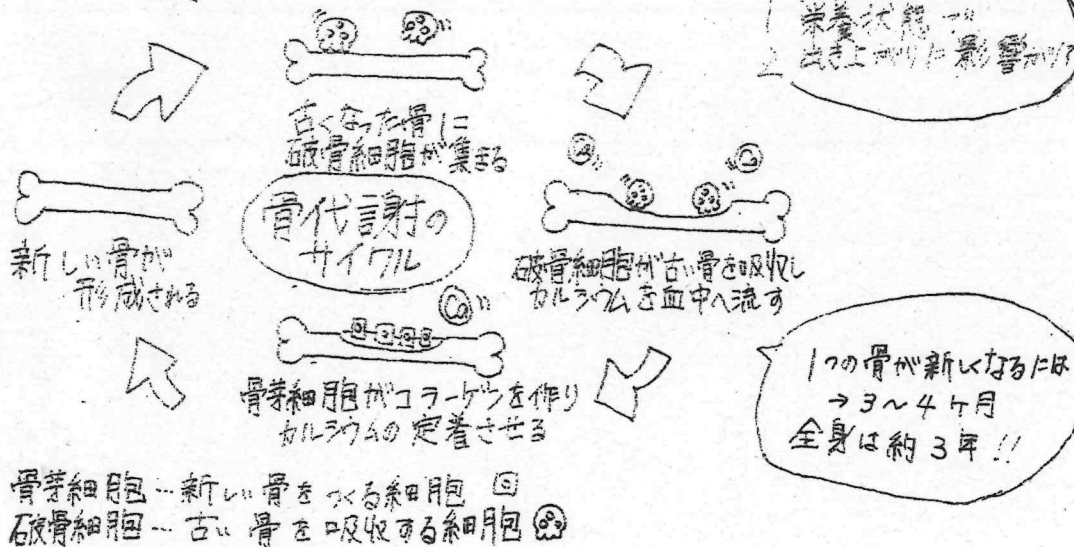 栄養状態が
出き上がりに影響
古くなった骨に
破骨細胞が集まる
骨代謝の
サイクル
新しい骨が
形成される
破骨細胞が古い骨を吸収し
カルシウムを血中へ流す
骨芽細胞がコラーゲンを作り
カルシウムの定着させる
1つの骨が新しくなるには
→3～4ヶ月
全身は約3年!!
骨芽細胞…新しい骨をつくる細胞
破骨細胞…古い骨を吸収する細胞